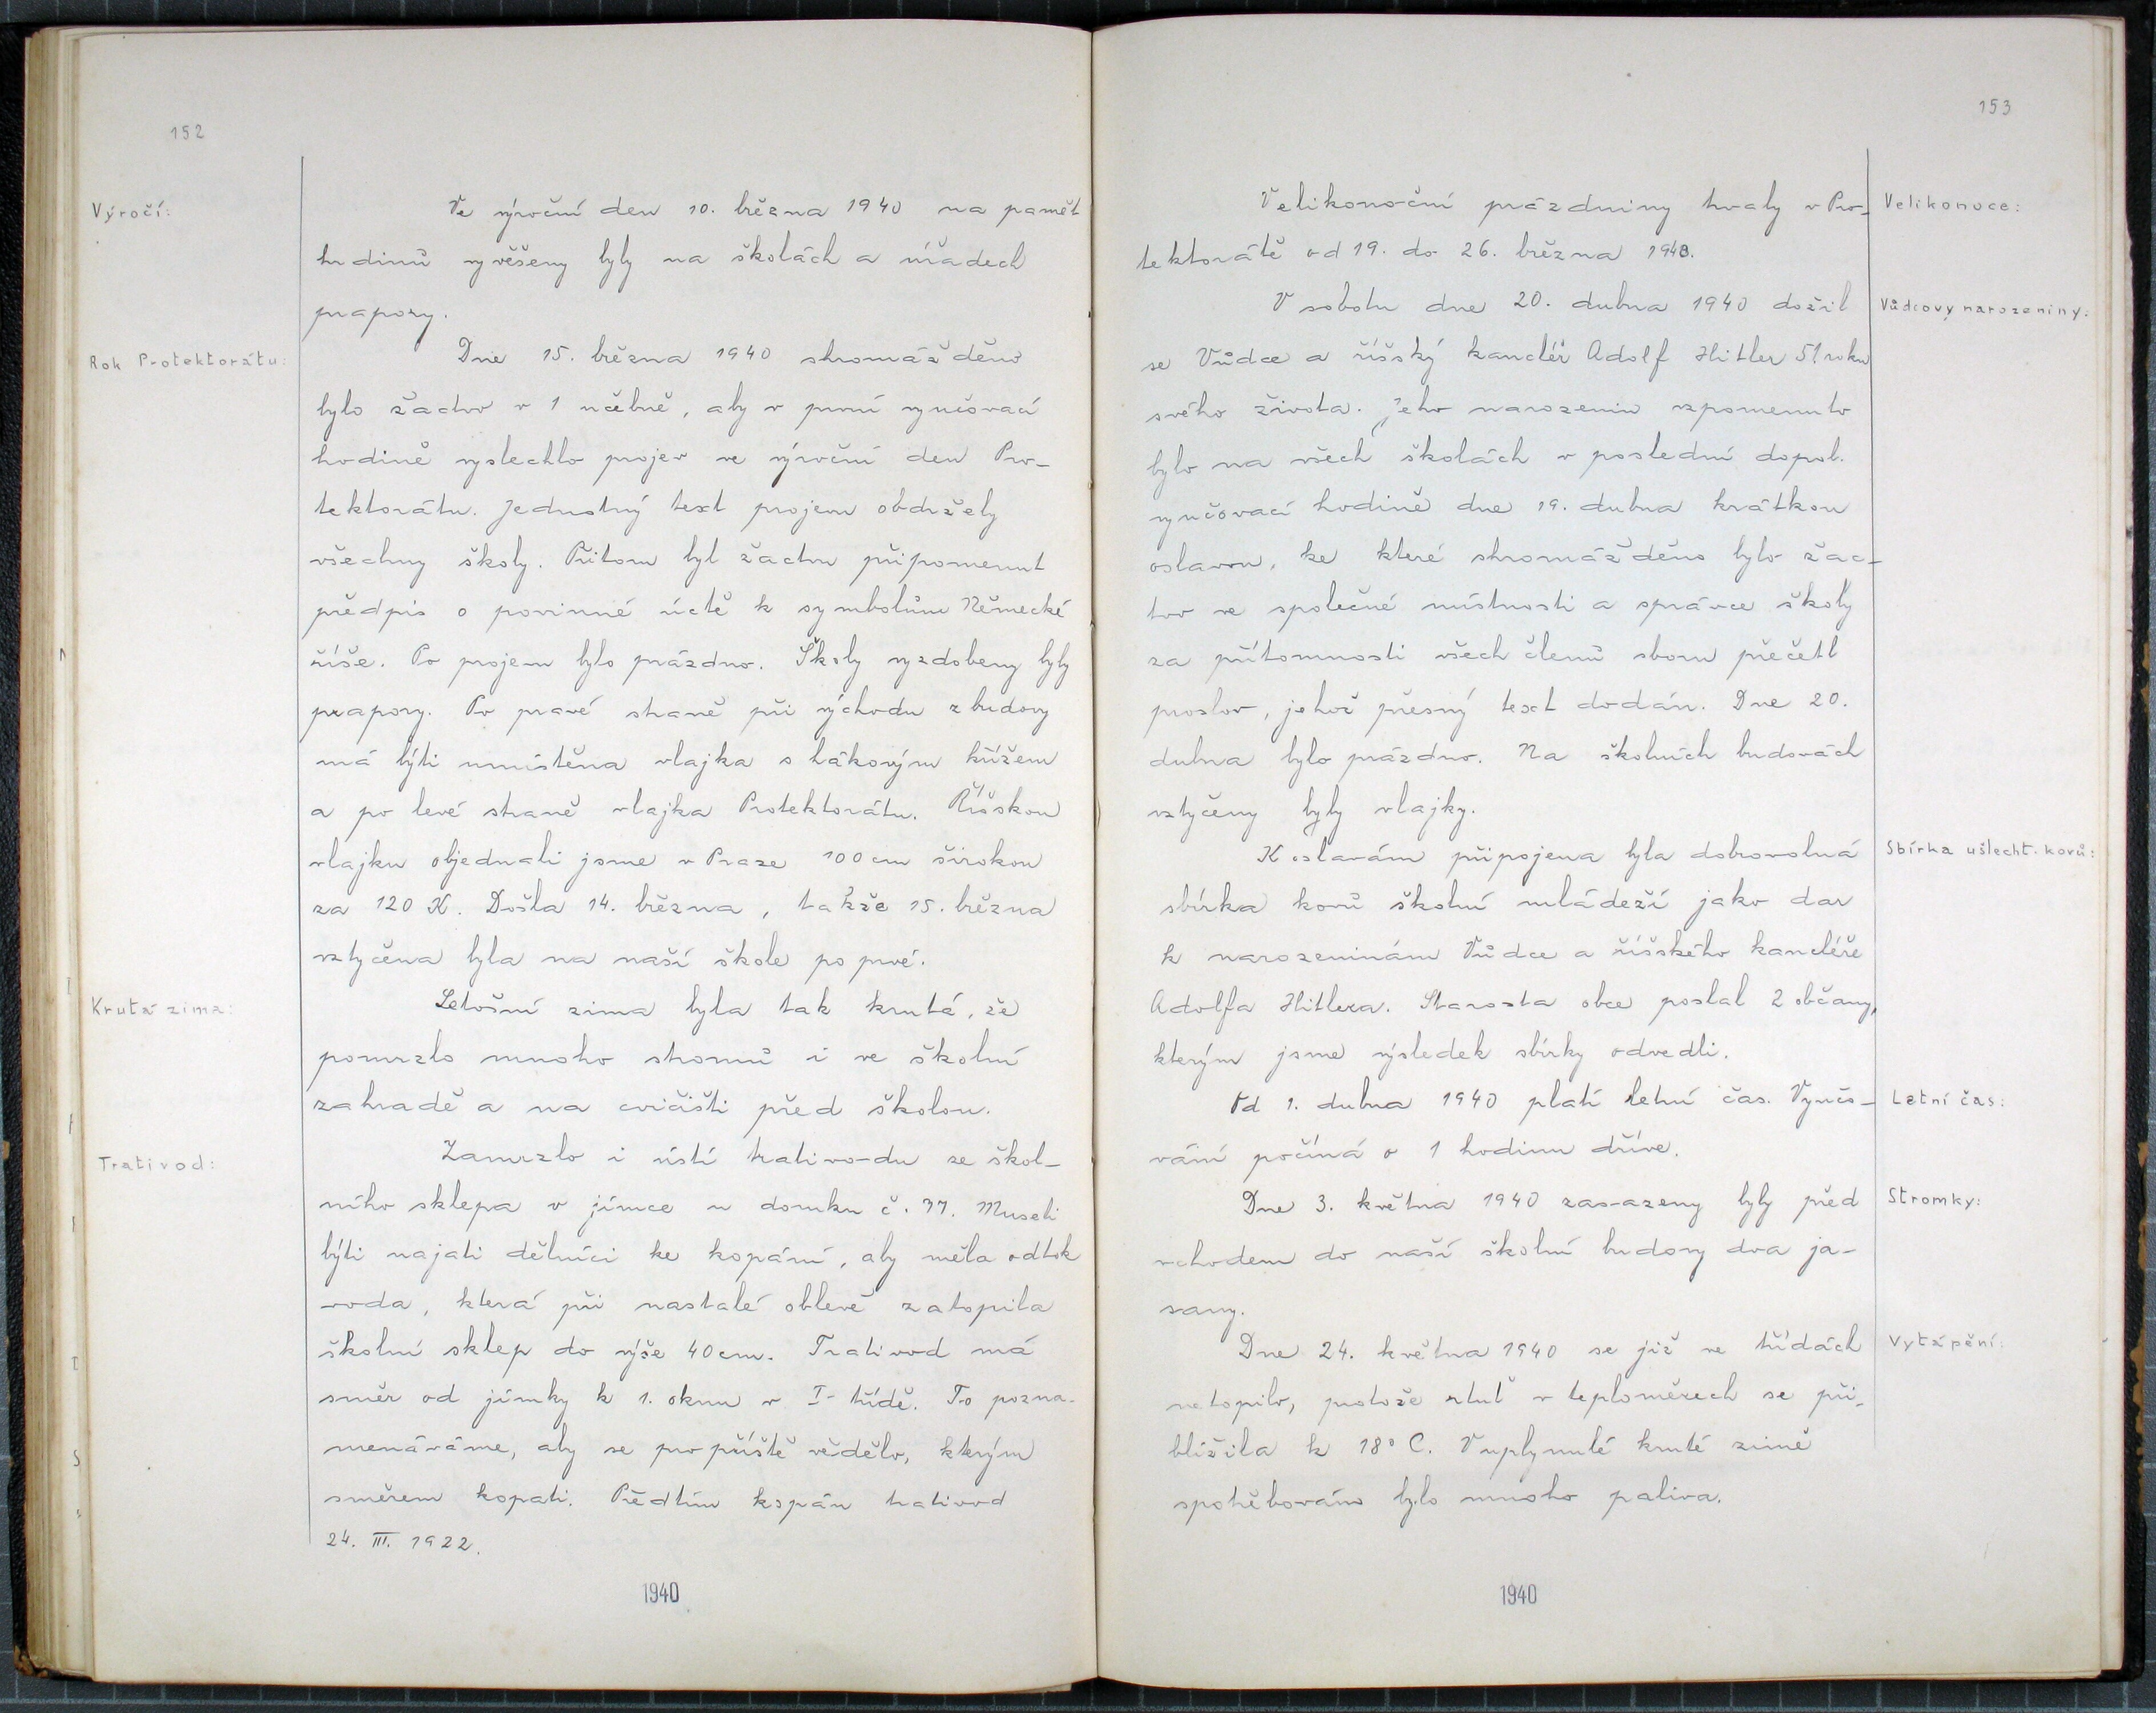 152
Výročí:
Ve výroční den 10. března 1940 na paměť
hrdinů vyvěšeny byly na školách a úřadech
prapory.
Rok Protektorátu:
Dne 15. března 1940 shromážděno
bylo žactvo v 1 učebně, aby v první vyučovací
hodině vyslechlo projev ve výroční den Pro-
tektorátu. Jednotný text projevu obdržely
všechny školy. Přitom byl žactvu připomenut
předpis o povinné úctě k symbolům Německé
říše. Po projevu bylo prázdno. Školy vyzdobeny byly
prapory. Po pravé straně při východu z budovy
má býti umístěna vlajka s hákovým křížem
a po levé straně vlajka Protektorátu. Říšskou
vlajku objednali jsme v Praze 100 cm širokou
za 120 K. Došla 14. března, takže 15. března
vztyčena byla na naší škole po prvé.
Krutá zima:
Letošní zima byla tak krutá, že
pomrzlo mnoho stromů i ve školní
zahradě a na cvičišti před školou.
Trativod:
Zamrzlo i ústí trativodu ze škol-
ního sklepa v jímce u domku č. 37. Museli
býti najati dělníci ke kopání, aby měla odtok
voda, která při nastalé oblevě zatopila
školní sklep do výše 40 cm. Trativod má
směr od jímky k 1. oknu v I. třídě. To pozna-
menáváme, aby se pro příště vědělo, kterým
směrem kopati. Předtím kopán trativod
24. III. 1922.
1940
153
Velikonoční prázdniny trvaly v Pro-
tektorátě od 19. do 26. března 1940.
Velikonoce:
V sobotu dne 20. dubna 1940 dožil
se Vůdce a říšský kancléř Adolf Hitler 51. roku
svého života. Jeho narozenin vzpomenuto
bylo na všech školách v poslední dopol.
vyučovací hodině dne 19. dubna krátkou
oslavou, ke které shromážděno bylo žac-
tvo ve společné místnosti a správce školy
za přítomnosti všech členů sboru přečetl
proslov, jehož přesný text dodán. Dne 20.
dubna bylo prázdno. Na školních budovách
vztyčeny byly vlajky.
Vůdcovy narozeniny:
K oslavám připojena byla dobrovolná
sbírka kovů školní mládeží jako dar
k narozeninám Vůdce a říšského kancléře
Adolfa Hitlera. Starosta obce poslal 2 občany,
kterým jsme výsledek sbírky odvedli.
Sbírka ušlecht. kovů:
Od 1. dubna 1940 platí letní čas. Vyučo-
vání počíná o 1 hodinu dříve.
Letní čas:
Dne 3. května 1940 zasazeny byly před
vchodem do naší školní budovy dva ja-
sany.
Stromky:
Dne 24. května 1940 se již ve třídách
netopilo, protože rtuť v teploměrech se při-
blížila k 18° C. V uplynulé kruté zimě
spotřebováno bylo mnoho paliva.
Vytápění:
1940